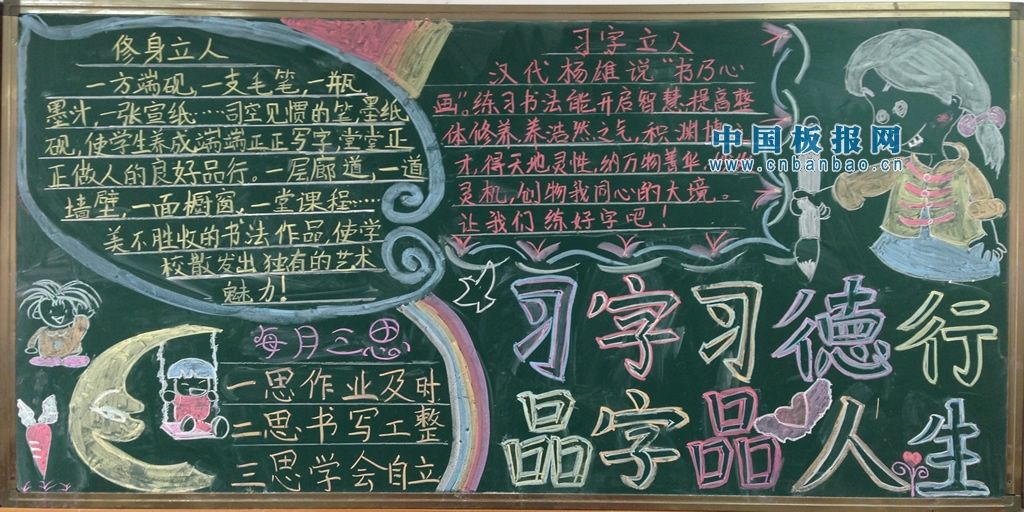 修身立人
一方端砚,一支毛笔,一瓶
墨汁,一张宣纸……司空见惯的笔墨纸
砚,使学生养成端端正正写字,堂堂正
正做人的良好品行。一层廊道,一道
墙壁,一面橱窗,一堂课程……
美不胜收的书法作品,使学
校散发出独有的艺术
魅力!
习字立人
汉代杨雄说“书乃心
画”。练习书法能开启智慧,提高整
体修养,养浩然之气,积渊博
才,得天地灵性,纳万物菁华,
灵机,创物我同心的大境。
让我们练好字吧!
中国板报网
www.cnbanbao.cn
每月三思
一思作业及时
二思书写工整
三思学会自立
习字习德行
品字品人生